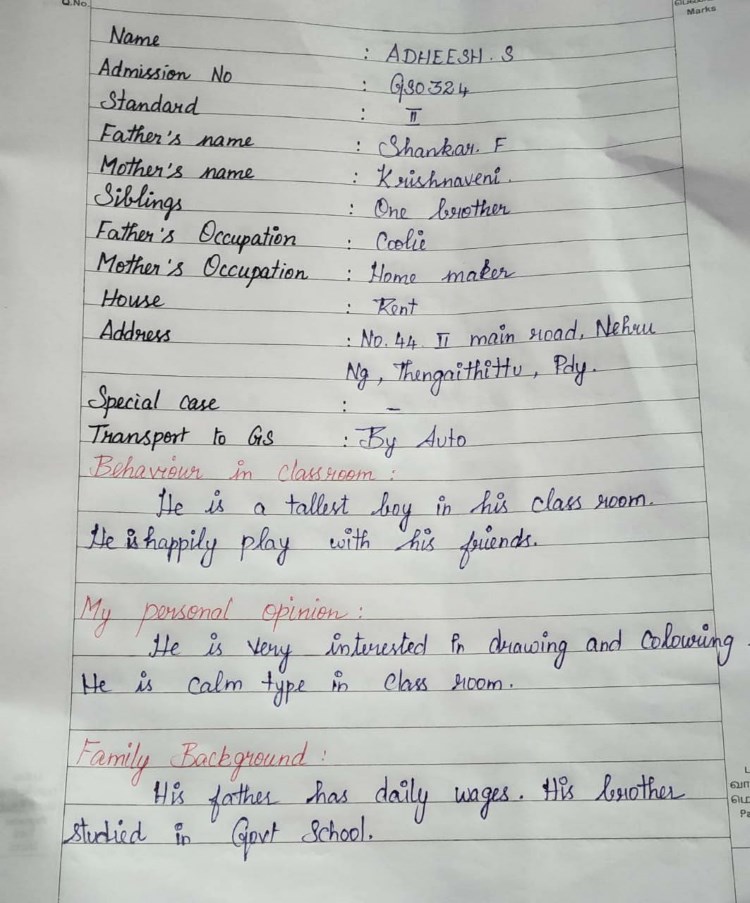 Q.No.
Marks
Name : ADHEESH. S
Admission No : GS0324
Standard : II
Father's name : Shankar. F
Mother's name : Krishnaveni.
Siblings : One brother
Father's Occupation : Coolie
Mother's Occupation : Home maker
House : Rent
Address : No. 44. II main road, Nehru
Ng, Thengaithittu, Pdy.
Special case : -
Transport to GS : By Auto
Behaviour in classroom :
He is a tallest boy in his class room.
He is happily play with his friends.
My personal opinion :
He is very interested in drawing and colouring.
He is calm type in class room.
Family Background :
His father has daily wages. His brother
studied in Govt School.